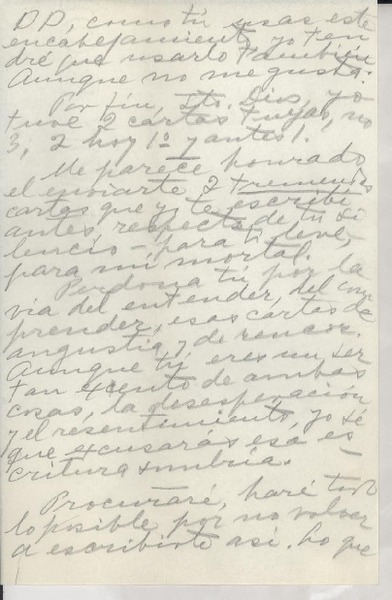 DD, como tú usas este
encabezamiento yo ten
dré que usarlo también
Aunque no me gusta.
Por fin, Sto. Dios, yo
tuve 2 cartas tuyas, no
3, 2 hoy 1º y antes 1.
Me parece honrado
el enviarte 2 tremendas
cartas que yo te escribí
antes, respecto de tu si
lencio – para ti leve,
para mí mortal.
Perdona tú por la
vía del entender, del com
prender, esas cartas de
angustia y de rencor.
Aunque tú eres un ser
tan exento de ambas
cosas, la desesperación
y el resentimiento, yo sé
que excusarás esa es
critura sombría.
Procuraré, haré todo
lo posible por no volver
a escribirte así. Lo que